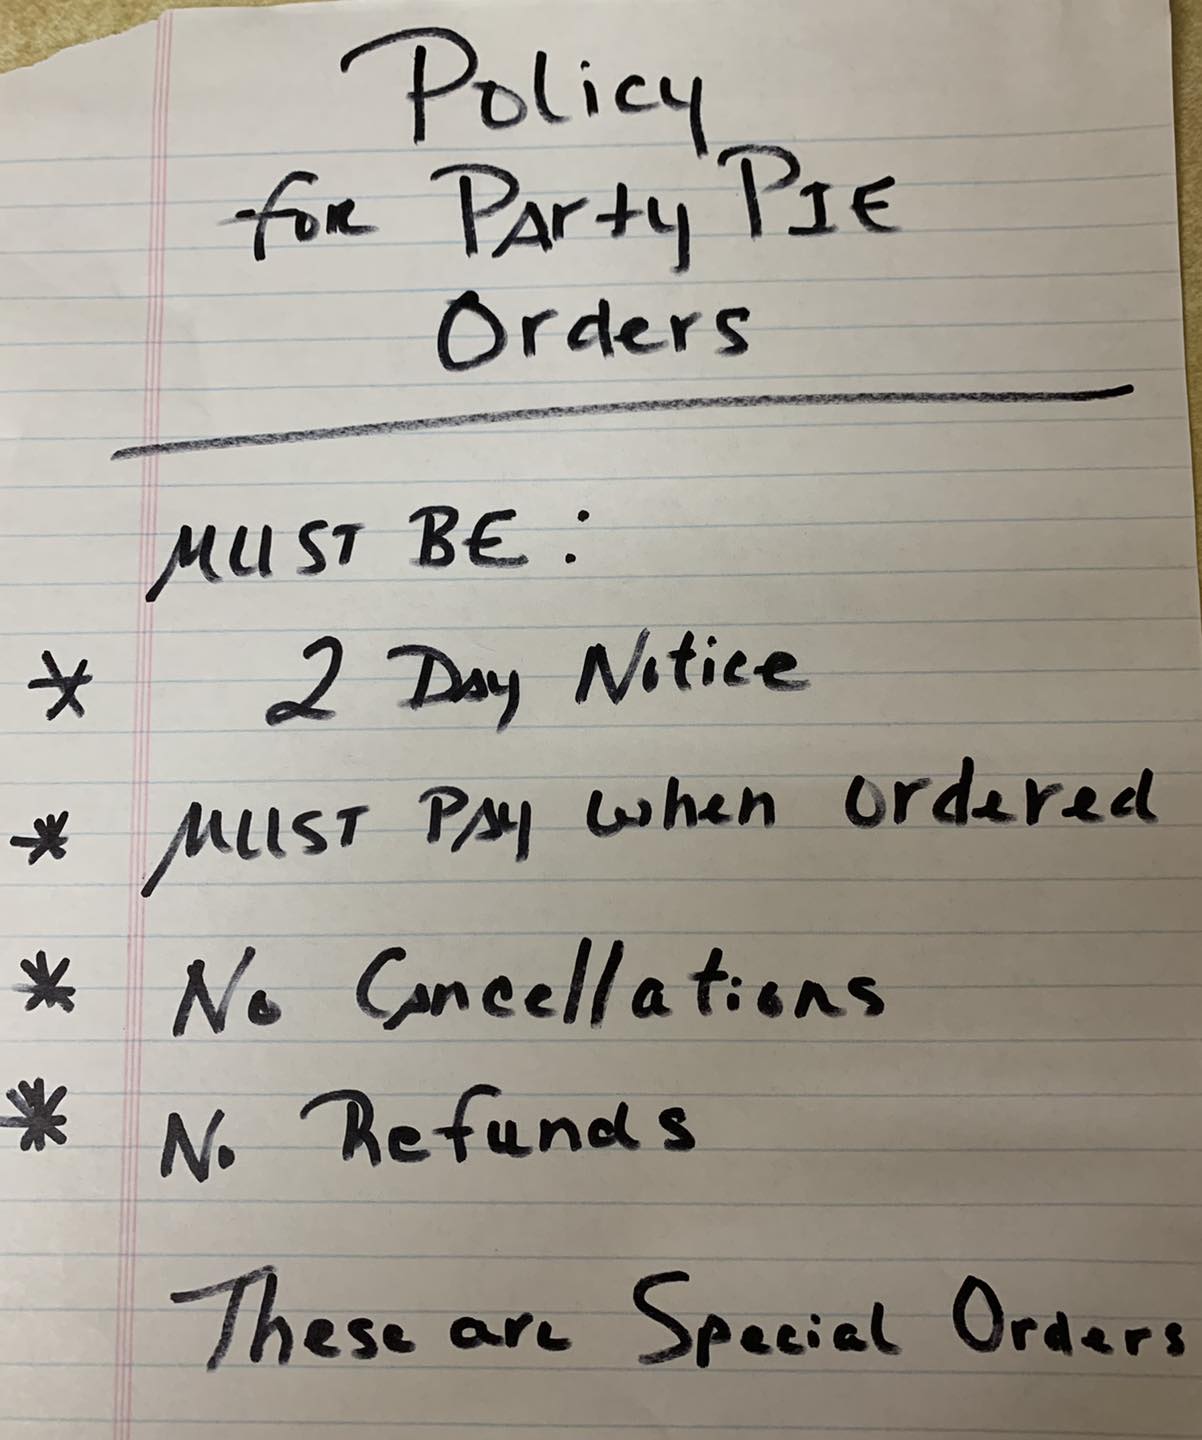 Policy
for Party PIE
Orders
MUST BE :
* 2 Day Notice
* MUST PAY when ordered
* No Cancellations
* No Refunds
These are Special Orders